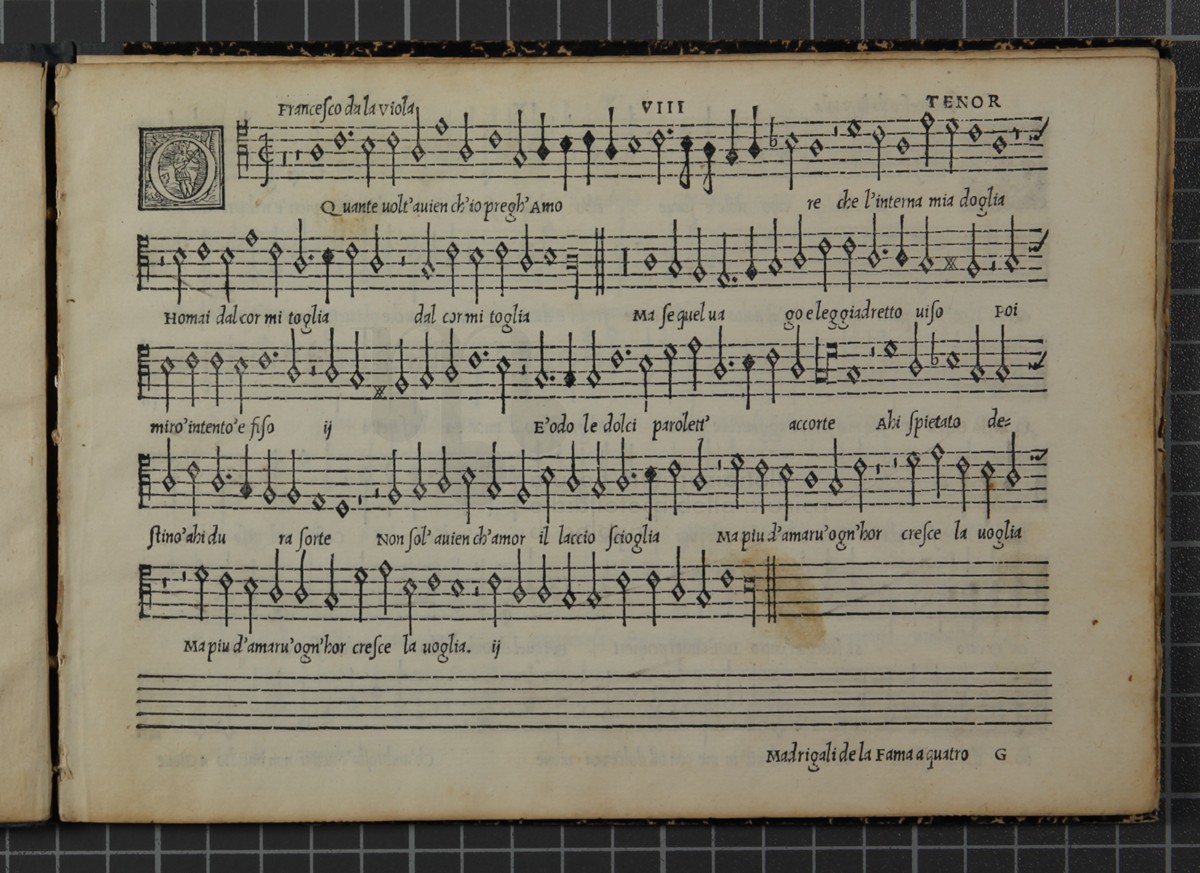 Franceſco da la viola VIII TENOR
Quante uolt' auien ch'io pregh' Amo re che l'interna mia doglia
Homai dal cor mi toglia dal cor mi toglia Ma ſe quel ua go e leggiadretto uiſo Poi
miro' intento' e fiſo ij E' odo le dolci parolett' accorte Ahi ſpietato de=
ſtino' ahi du ra ſorte Non ſol' auien ch'amor il laccio ſcioglia Ma piu d'amaru' ogn'hor creſce la uoglia
Ma piu d'amaru' ogn'hor creſce la uoglia. ij
Madrigali de la Fama a quatro G